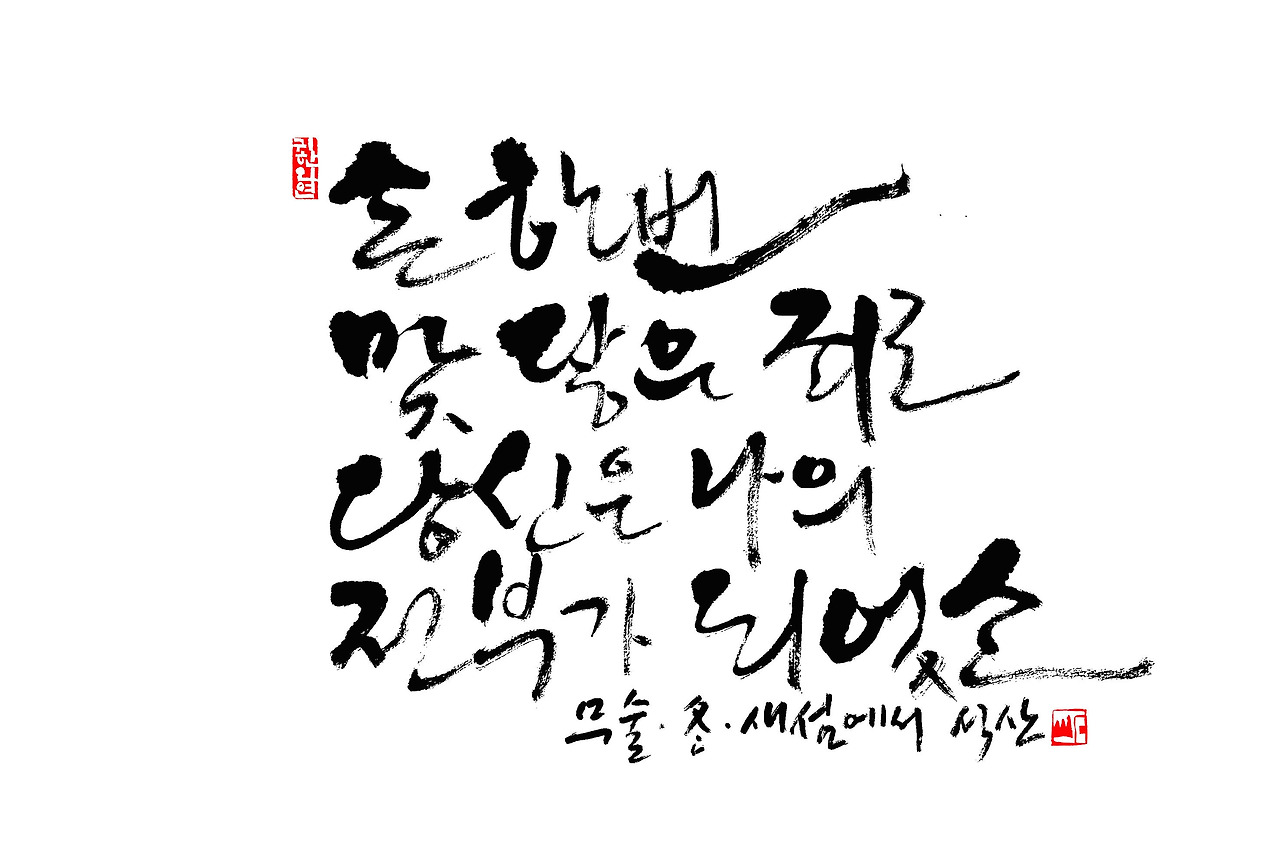 손 한번
맞 닿은 죄로
당신은 나의
전부가 되었소
무술·冬·새섬에서 석산